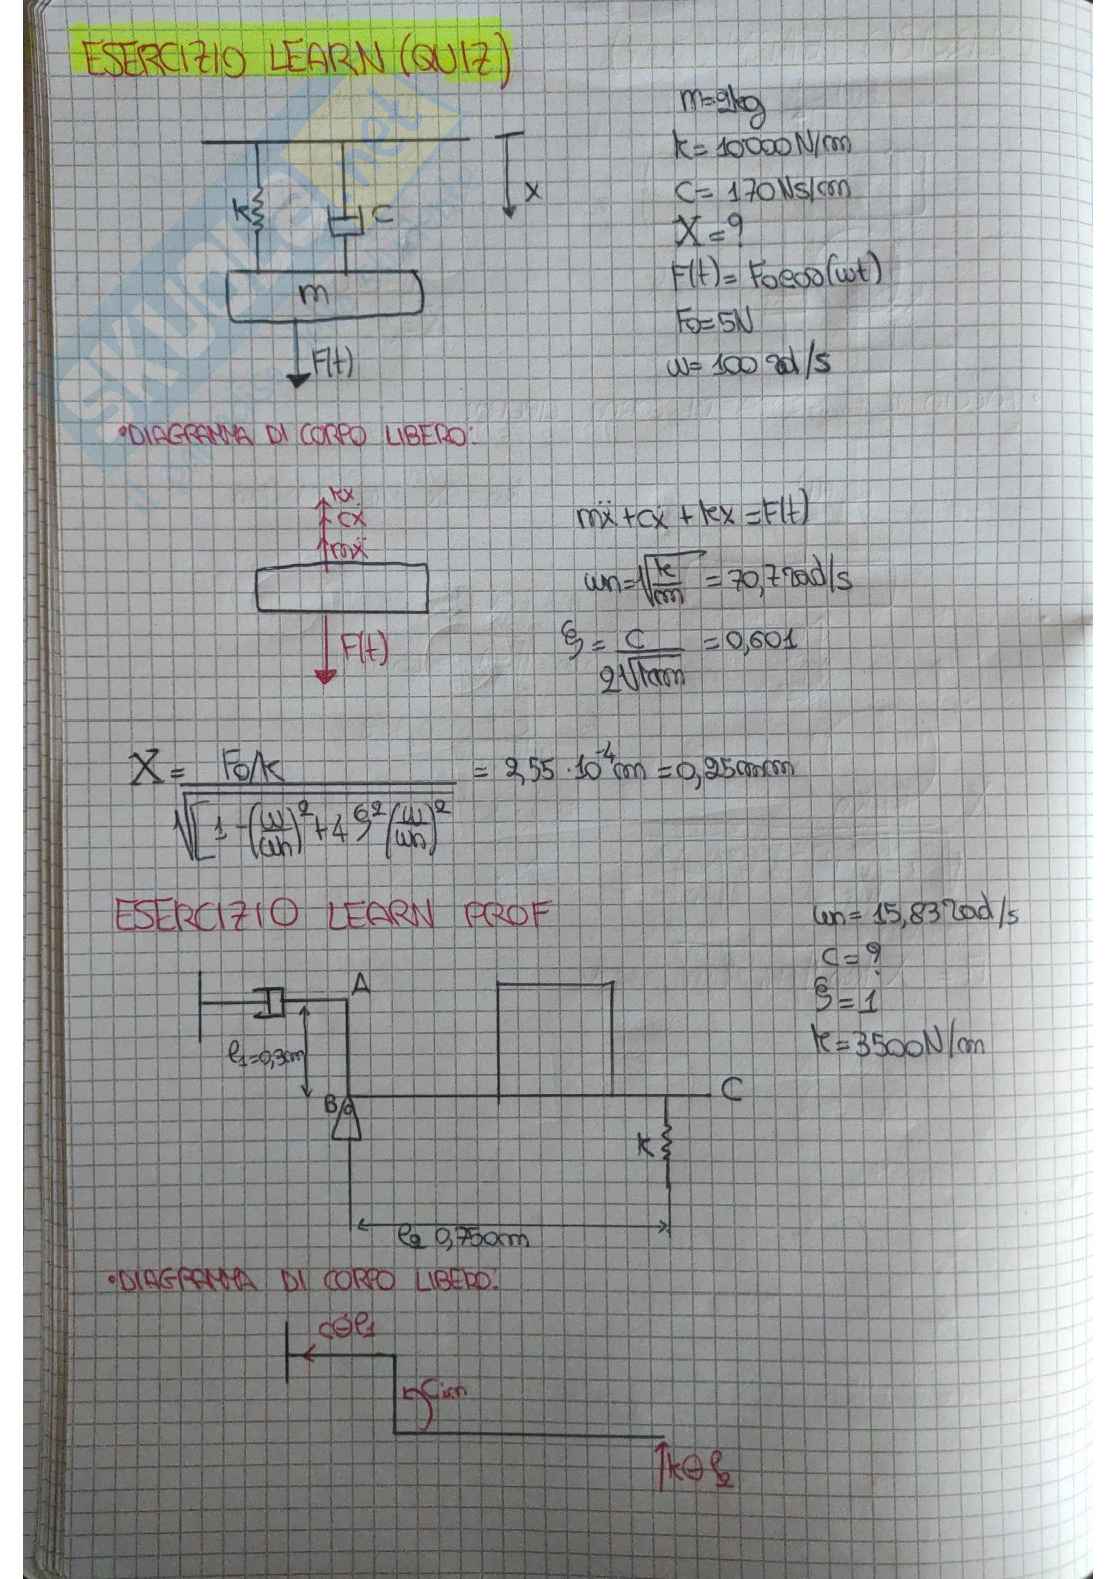 ESERCIZIO LEARN (QUIZ)
m=2kg
k= 10000 N/m
C= 170 Ns/m
X=?
F(t)= F0 cos(ωt)
F0=5N
ω= 100 rad/s
k
C
x
m
F(t)
•DIAGRAMMA DI CORPO LIBERO:
kx
cẋ
mẍ
F(t)
mẍ+cẋ+kx=F(t)
ωn=√k/m = 70,7 rad/s
ξ= c/2√km =0,601
X= F0/k / √[1-(ω/ωn)²+4ξ²(ω/ωn)² = 2,55 · 10⁻⁴m =0,25mm
ESERCIZIO LEARN PROF
ωn= 15,83 rad/s
C=?
ξ=1
k=3500N/m
A
l1=0,3m
B
C
k
l2 0,750m
•DIAGRAMMA DI CORPO LIBERO:
cθ̇l1
Cin
kθl2
SKUOLA.net